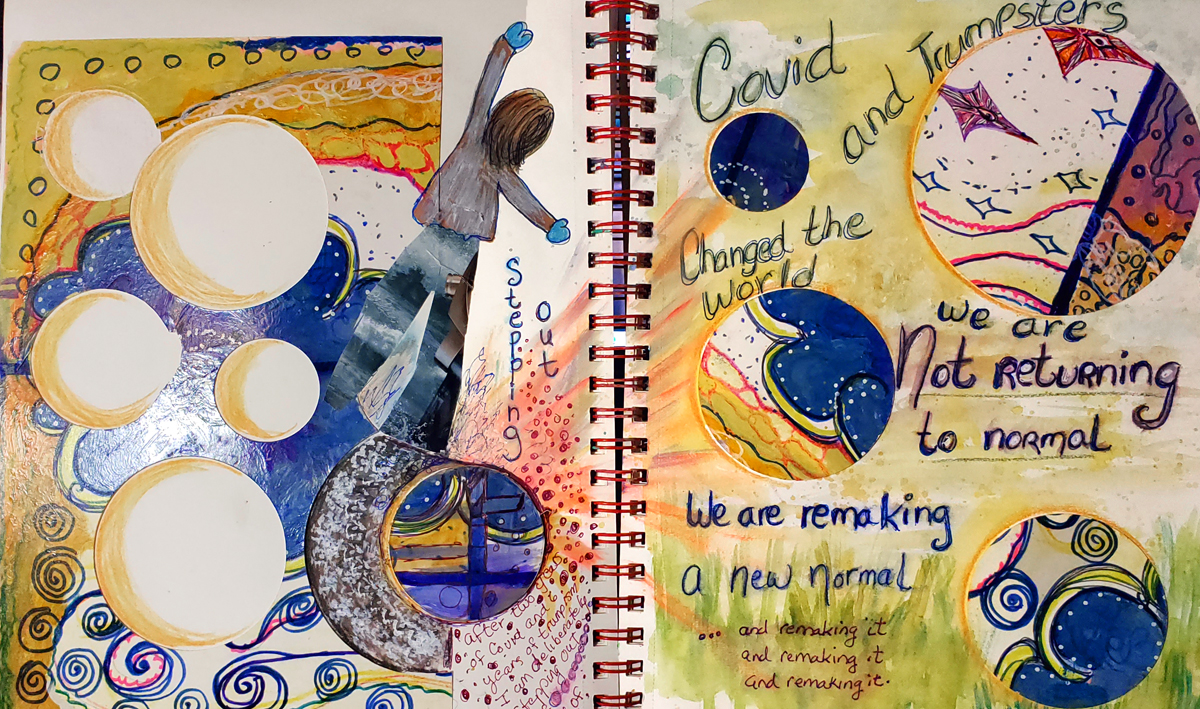 Stepping
out
after two years
of Covid and 6
years of trumpism
I am deliberately
stepping out
of
Covid
and Trumpsters
Changed the
world
we are
Not returning
to normal
We are remaking
a new normal
... and remaking it
and remaking it
and remaking it.